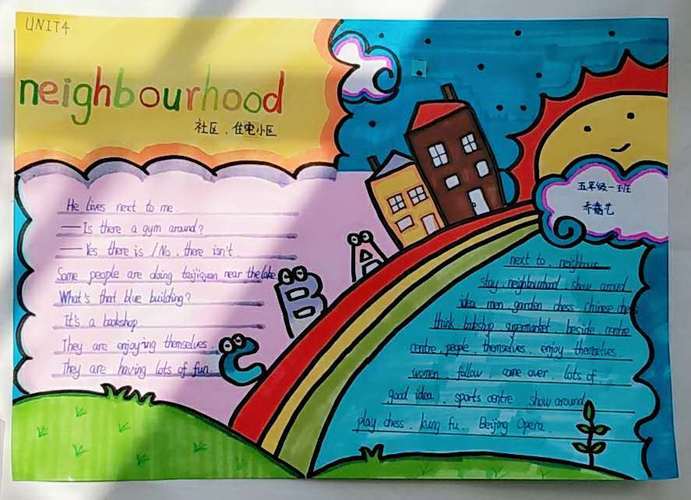 UNIT4
neighbourhood
社区、住宅小区
He lives next to me.
——Is there a gym around?
——Yes, there is. /No, there isn't.
Some people are doing taijiquan near the lake.
What's that blue building?
It's a bookshop
They are enjoying themselves.
They are having lots of fun.
A
B
C
五年级一班
next to . neighbour
stay neighbourhood show around
idea men garden chess chinese
think bookshop supermarket beside centre
centre people themselves enjoy themselves
women follow come over lots of
good idea . sports centre . show around
play chess . kung fu . Beijing Opera .